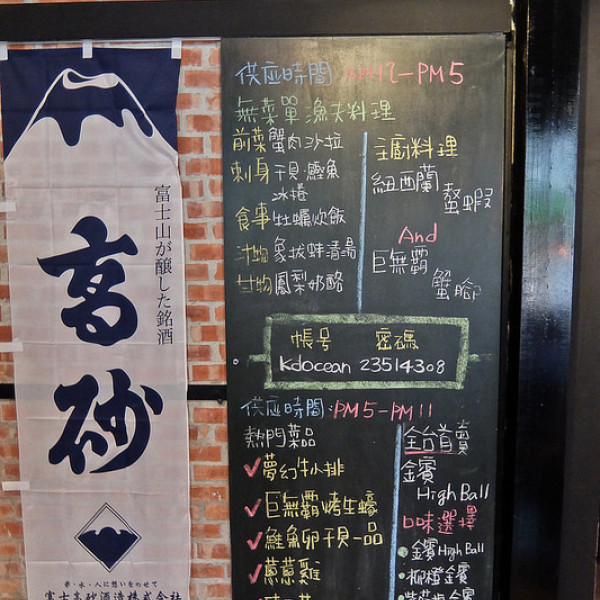 高砂
富士山が醸した銘酒
米・水・人に想いをのせて
富士高砂酒造株式会社
供应時間 PM12-PM5
無菜單漁夫料理
前菜 蟹肉沙拉
刺身 干貝.鰹魚
冰捲
食事 牡蠣炊飯
汁物 象拔蚌清湯
甘物 鳳梨奶酪
主廚料理
紐西蘭
螯蝦
And
巨無霸
蟹腳
帳号 密碼
kdocean 23514308
供应時間:PM5-PM11
熱門菜品
夢幻牛小排
巨無霸烤生蠔
鮭魚卵干貝一品
蔥蔥雞
全台首賣
金賓
High Ball
口味選擇
金賓 High Ball
柳橙金賓